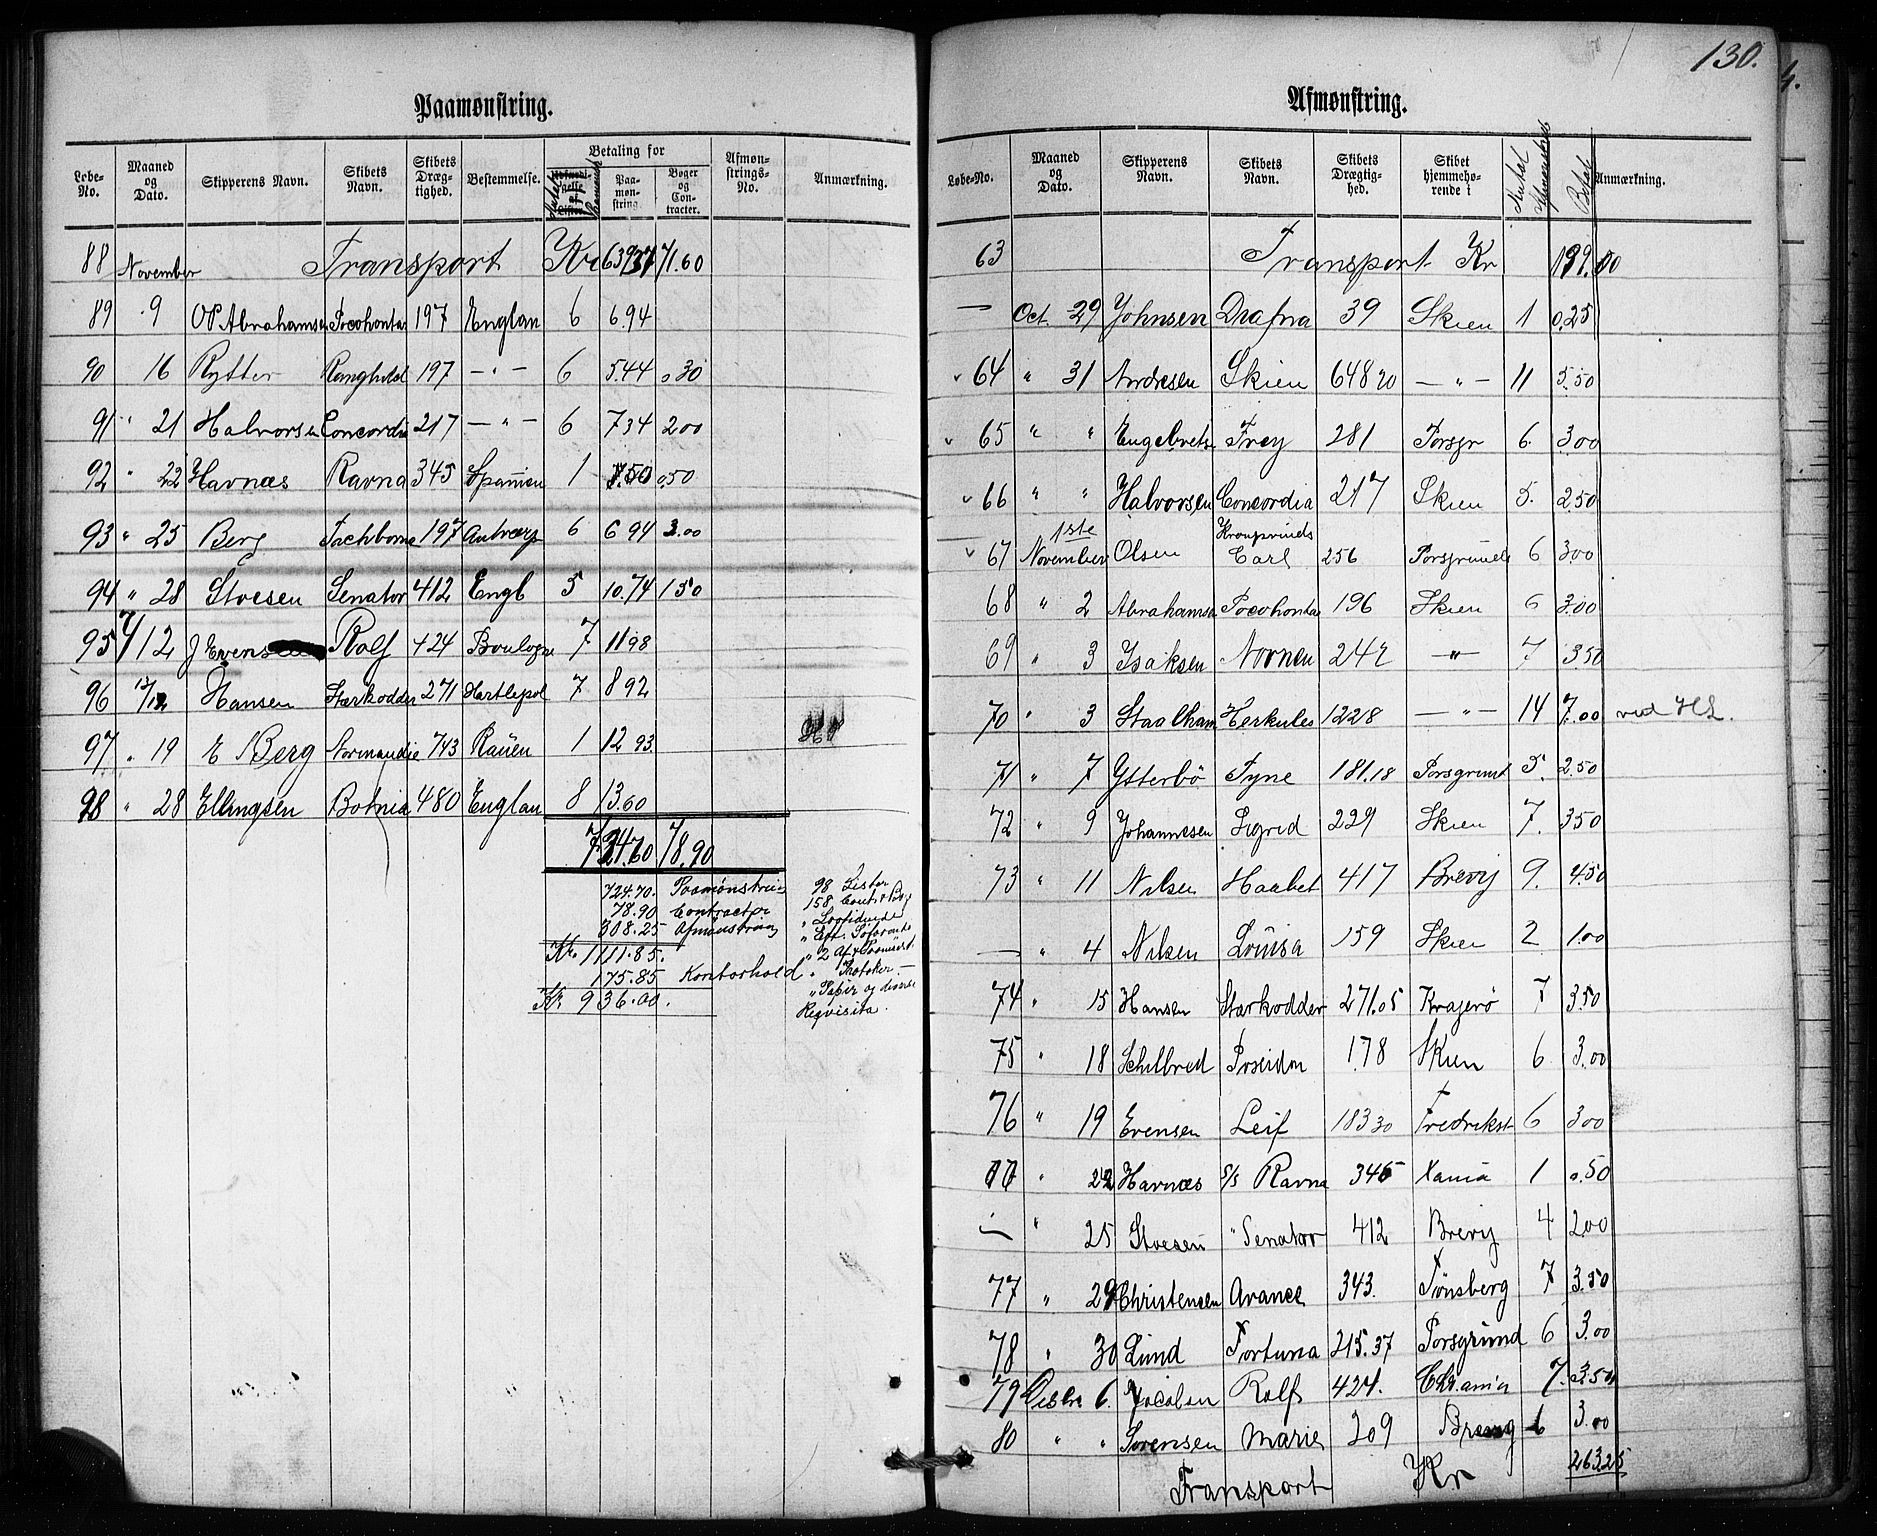 Paamønstring.
Løbe-No. Maaned og Dato. Skipperens Navn. Skibets Navn. Skibets Drægtighed. Bestemmelse. Betaling for Paamønstring. Bøger og Contracter. Afmønstrings-No. Anmærkning.
88 November Transport Kr 71.60
89 9 OP Abrahamsen Pocohontas 197 Englan 6 6.94
90 16 Rytter Ranghild 197 -"- 6 5.44 0.30
91 " 21 Halvorsen Concordia 217 -"- 6 7 34 2 00
92 " 22 Havnæs Ravna 345 Spanien 1 7.50 0.50
93 " 25 Berg 197 Antverp 6 6 94 3.00
94 " 28 Stoesen Senator 412 Engl 5 10.74 1 50
95 7/12 J Evensen Rolf 424 Boulogne 7 11 98
96 12/12 Hansen Starkodder 271 Hartlepol 7 8 92
97 " 19 E Berg Normandie 743 Rauen 1 12 93
98 " 28 Ellingsen Botnia 480 Englan 8 13.60
724.70 78.90
724.70. Paamønstring 98 Lister
78.90 Contracter 158
308.25 Afmønstring
Kr. 1111.85.
175.85 Kontorhold " Protoker.
Kr. 936.00. " Papir og diverse
Reqvisita.
130.
Afmønstring.
Løbe-No. Maaned og Dato. Skipperens Navn. Skibets Navn. Skibets Drægtighed. Skibet hjemmehørende i Antal Betalt Anmærkning.
63 Transport Kr 199.00
— Oct. 29 Johnsen Drafna 39 Skien 1 0.25
64 " 31 Andresen Skien 648 20 -"- 11 5.50
65 " " Engebrets Frey 281 Porsgr 6. 3.00
66 " " Halvorsen Concordia 217 Skien 5. 2.50
67 1ste November Olsen Kronprinds Carl 256 Porsgrund 6 3.00
68 " 2 Abrahamsen Pocohontas 196 Skien 6 3.00
69 " 3 Isaksen Nornen 242 -"- 7 3.50
70 " 3 Staalham Herkules 1228 -"- 14 7.00 ved HL.
71 " 7 Ytterbö Tyne 181.18 Porsgrunt 5. 2.50
72 " 9 Johannesen Sigrid 229 Skien 7. 3.50
73 " 11 Nilsen Haabet 417 Brevig 9. 4.50
— " 4 Nilsen Louisa 159 Skien 2 1.00
74 " 15 Hansen Starkodder 271.05 Kragerø 7 3.50
75 " 18 Schilbred Poseidon 178 Skien 6 3.00
76 " 19 Evensen Leif 183 30 Fredrikst 6 3.00
" 22 Havnæs S/S Ravna 345 Xania 1 0.50
— " 25 Stoesen " Senator 412 Brevig 4 2.00
77 " 29 Christensen Avance 343. Tønsberg 7 3.50
78 " 30 Lund Fortuna 215.37 Porsgrund 6 3.00
79 Decbr 6. Jacobsen Rolf 424. Chrania 7. 3.50
80 " " Sørensen Marie 209 Brevig 6 3.00
Transport Kr 263.25